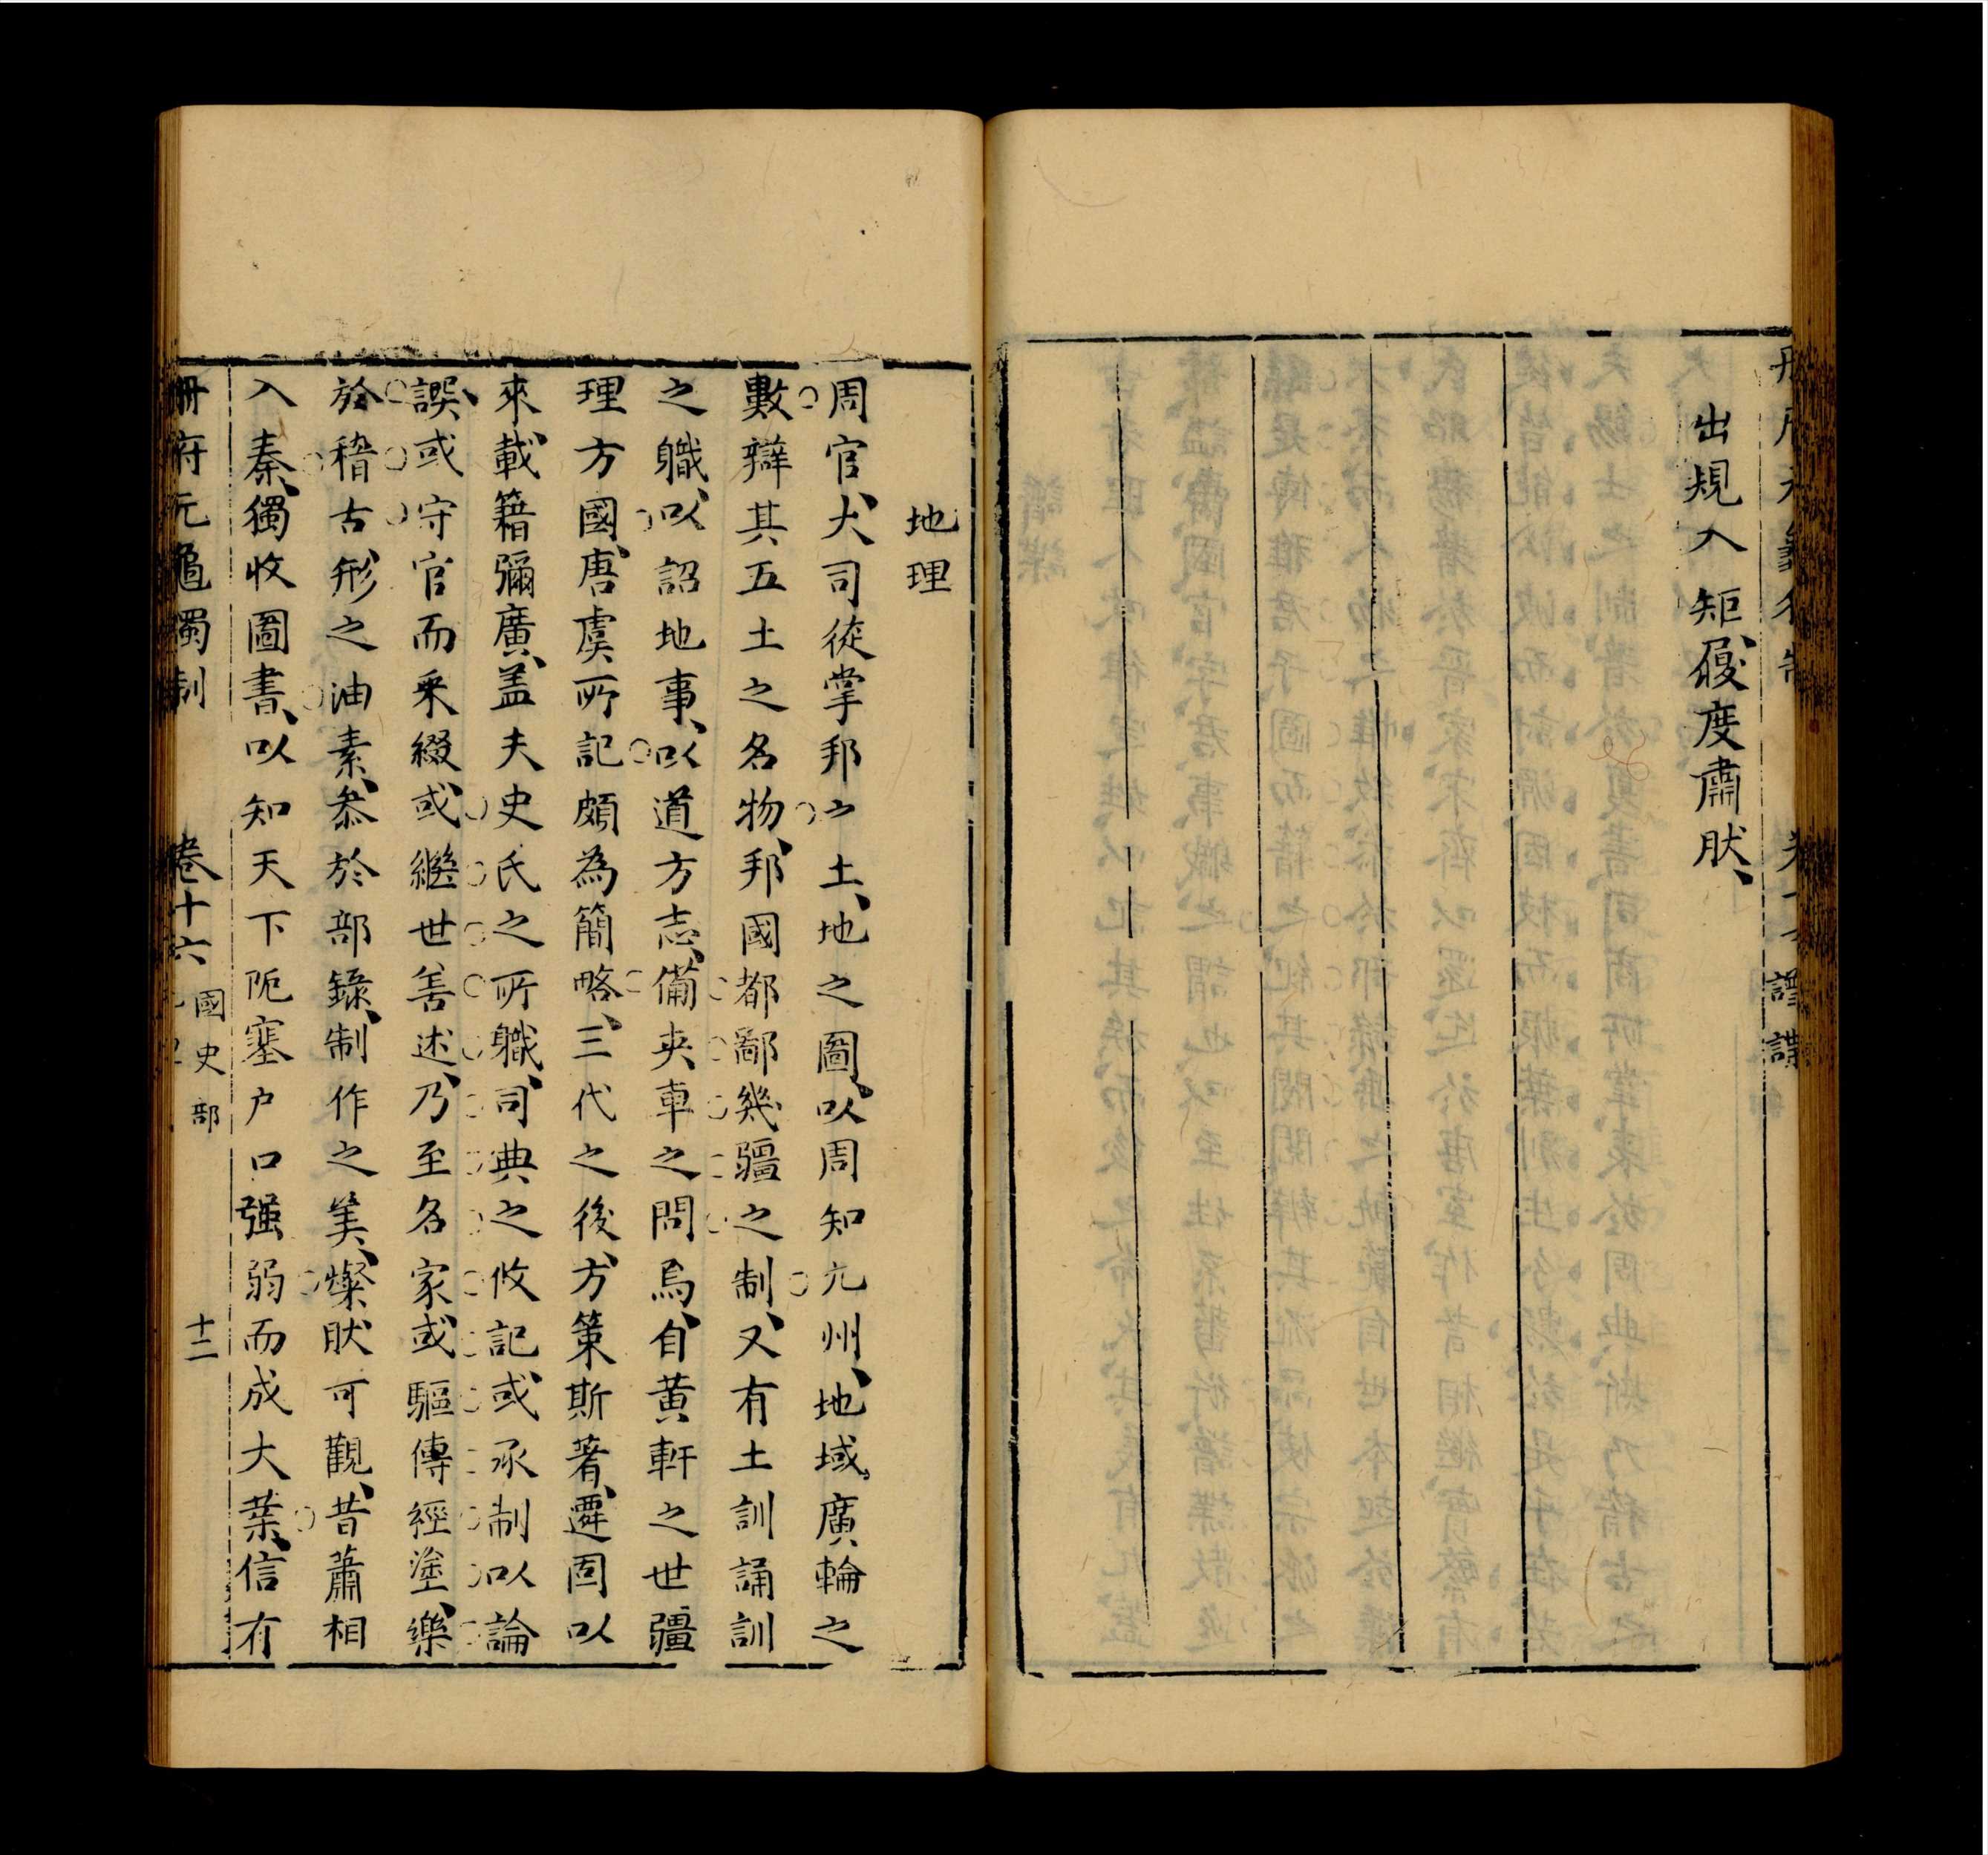 出規入矩履度肅肰
譜諜
地理
周官大司徒掌邦之土地之圖以周知九州地域廣輪之
數辯其五土之名物邦國都鄙幾疆之制又有土訓誦訓
之職以詔地事以道方志備夾車之問焉自黃軒之世疆
理方國唐虞所記頗為簡略三代之後方策斯著遷固以
來載籍彌廣盖夫史氏之所職司典之攸記或承制以論
譔或守官而采綴或繼世善述乃至名家或驅傳經塗樂
於稽古形之油素叅於部錄制作之美燦肰可觀昔蕭相
入秦獨收圖書以知天下阨塞户口强弱而成大業信有
冊府元龜獨制
卷十六
國史部
十二